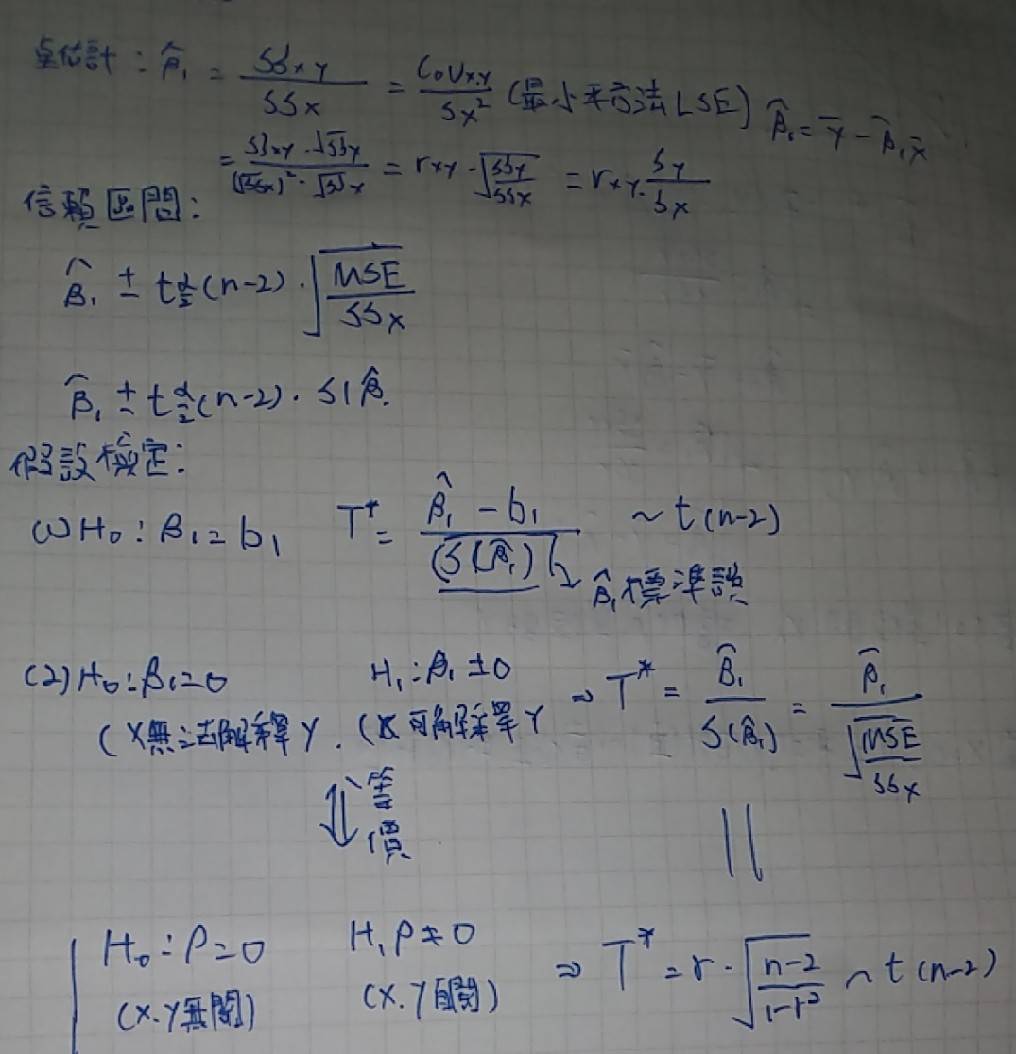 點估計：β̂₁ = SSxy / SSx = Covx,y / Sx² (最小平方法LSE) β̂₁ = ȳ - β̂₁x̄
= SSxy · √SSy / (√SSx)² · √SSx = rxy · √(SSy / SSx) = rxy · Sy / Sx
信賴區間：
β̂₁ ± t α/2 (n-2) · √(MSE / SSx)
β̂₁ ± t α/2 (n-2) · S(β̂.
假設檢定：
(1) H₀ : β₁ = b₁ T* = β̂₁ - b₁ / S(β̂₁) ~ t(n-2)
β̂₁標準誤
(2) H₀ : β₁ = 0 H₁ : β₁ ≠ 0 ⇒ T* = β̂₁ / S(β̂₁) = β̂₁ / √(MSE / SSx)
(X無法解釋Y . (X可解釋Y
⇕ 等價 ||
H₀ : ρ = 0 H₁ ρ ≠ 0 ⇒ T* = r · √(n-2 / 1-r²) ~ t(n-2)
(X.Y無關) (X.Y有關)